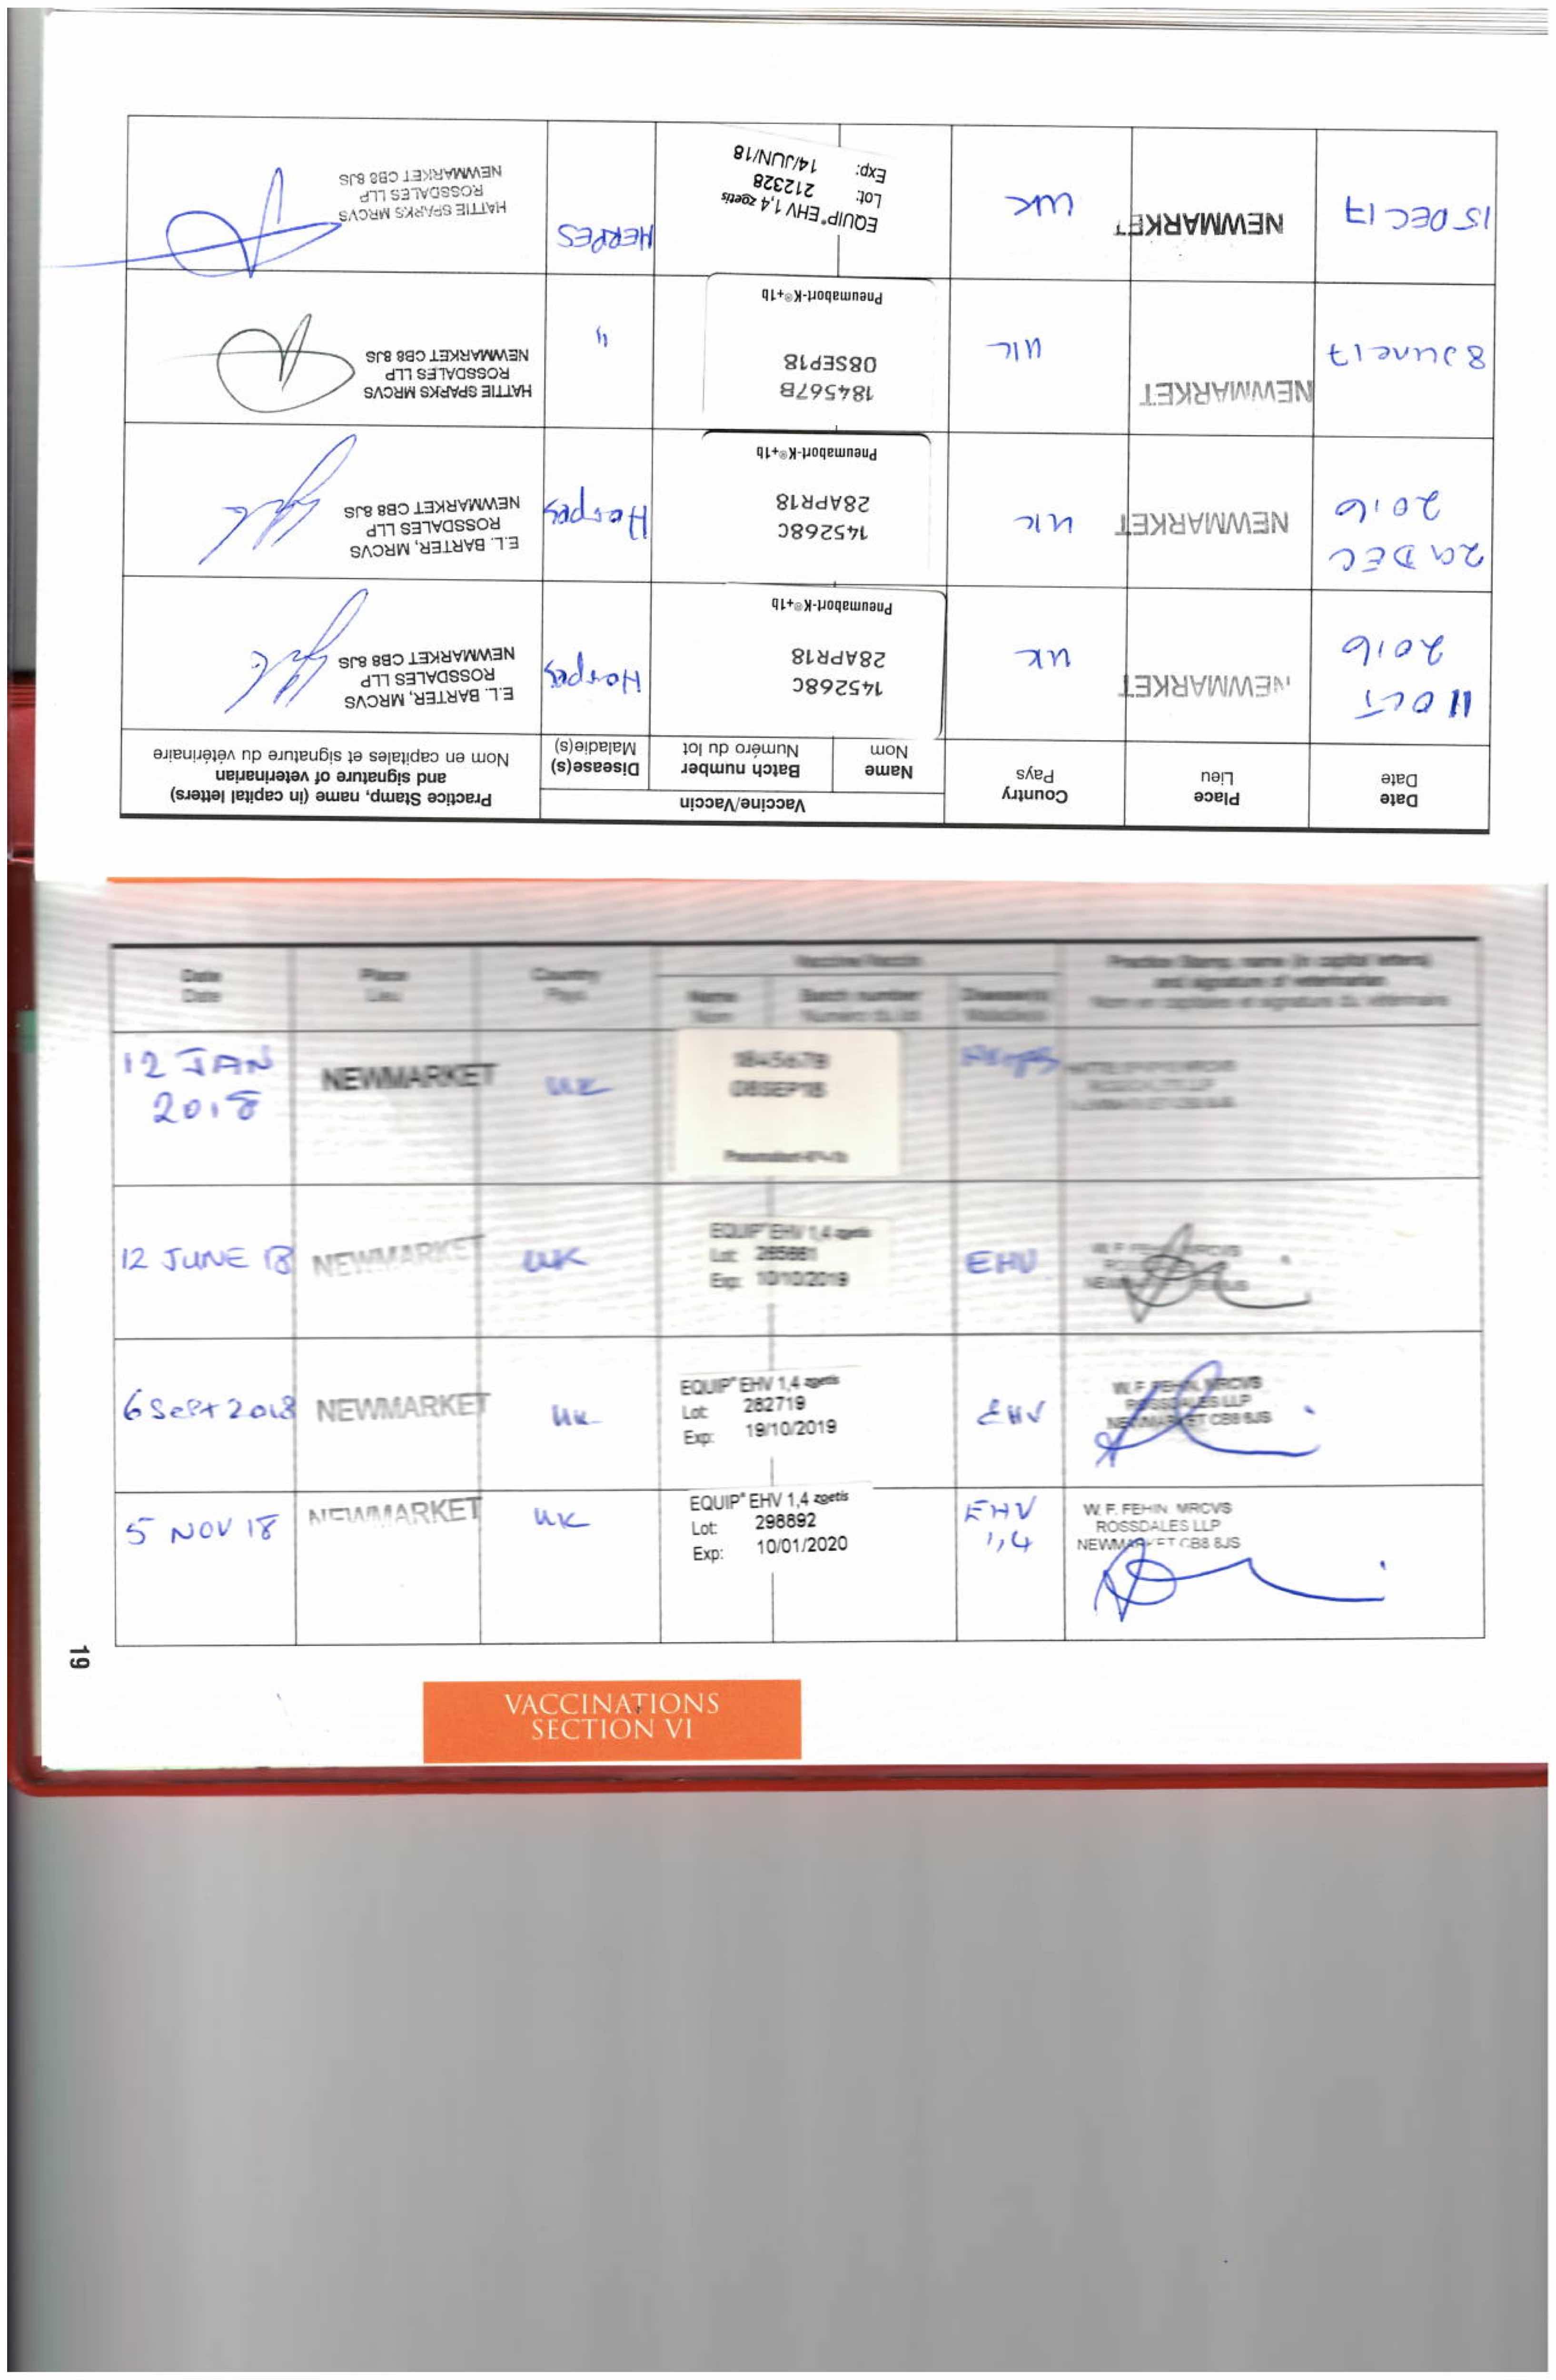 Date
Date
Place
Lieu
Country
Pays
Vaccine/Vaccin
Name
Nom
Batch number
Numéro du lot
Disease(s)
Maladie(s)
Practice Stamp, name (in capital letters)
and signature of veterinarian
Nom en capitales et signature du vétérinaire
11 OCT
2016
NEWMARKET
UK
145268C
28APR18
Pneumabort-K®+1b
Herpes
E.L. BARTER, MRCVS
ROSSDALES LLP
NEWMARKET CB8 8JS
29 DEC
2016
NEWMARKET
UK
145268C
28APR18
Pneumabort-K®+1b
Herpes
E.L. BARTER, MRCVS
ROSSDALES LLP
NEWMARKET CB8 8JS
8 June 17
NEWMARKET
UK
184567B
08SEP18
Pneumabort-K®+1b
"
HATTIE SPARKS MRCVS
ROSSDALES LLP
NEWMARKET CB8 8JS
15 DEC 17
NEWMARKET
UK
EQUIP® EHV 1,4 zoetis
Lot: 212328
Exp: 14/JUN/18
HERPES
HATTIE SPARKS MRCVS
ROSSDALES LLP
NEWMARKET CB8 8JS
Date
Date
Place
Lieu
Country
Pays
Vaccine/Vaccin
Name
Nom
Batch number
Numéro du lot
Disease(s)
Maladie(s)
Practice Stamp, name (in capital letters)
and signature of veterinarian
Nom en capitales et signature du vétérinaire
12 JAN
2018
NEWMARKET
UK
184567B
08SEP18
Pneumabort-K®+1b
Herpes
HATTIE SPARKS MRCVS
ROSSDALES LLP
NEWMARKET CB8 8JS
12 JUNE 18
NEWMARKET
UK
EQUIP® EHV 1,4 zoetis
Lot:
Exp: 10/10/2019
EHV
W. F. FEHIN, MRCVS
ROSSDALES LLP
NEWMARKET CB8 8JS
6 Sept 2018
NEWMARKET
UK
EQUIP® EHV 1,4 zoetis
Lot: 282719
Exp: 19/10/2019
EHV
W. F. FEHIN, MRCVS
ROSSDALES LLP
NEWMARKET CB8 8JS
5 NOV 18
NEWMARKET
UK
EQUIP® EHV 1,4 zoetis
Lot: 298892
Exp: 10/01/2020
EHV
1,4
W. F. FEHIN, MRCVS
ROSSDALES LLP
NEWMARKET CB8 8JS
19
VACCINATIONS
SECTION VI